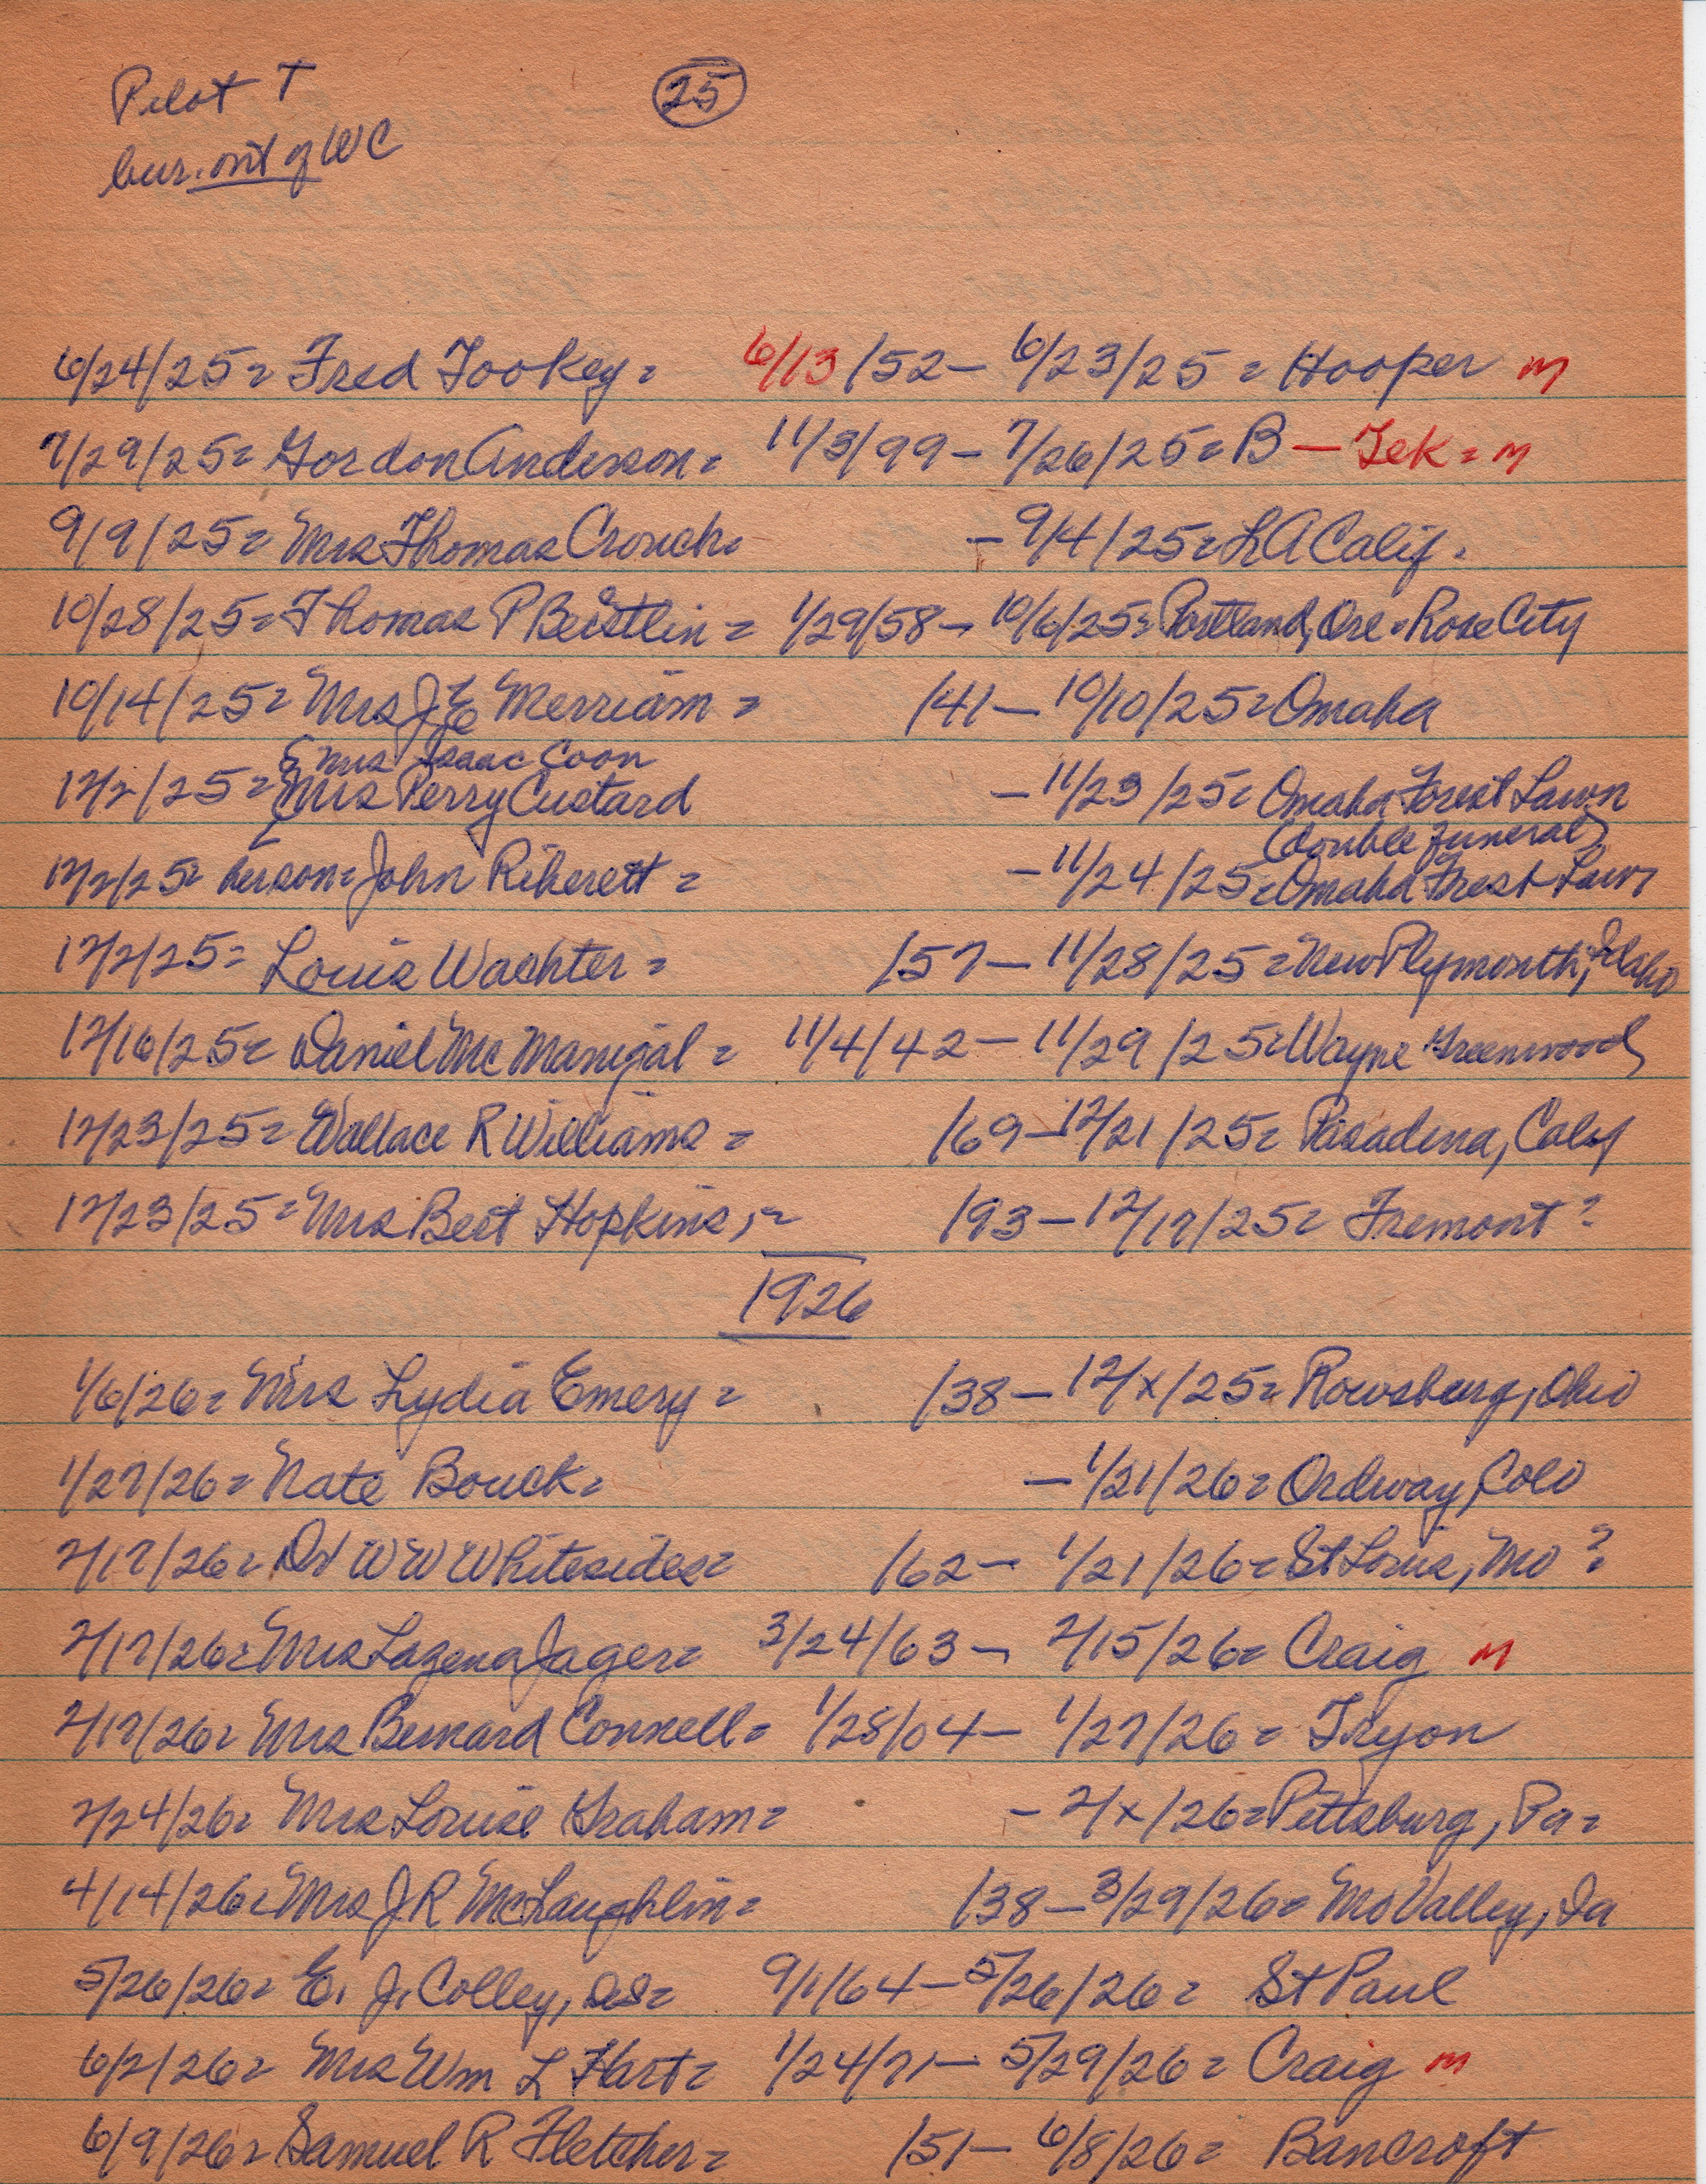 Pilot T
25
bur. out of WC
6/24/25= Fred Tookey= 6/13/52- 6/23/25= Hooper m
7/29/25= Gordon Anderson= 11/3/99- 7/26/25= B - Tek= m
9/9/25= Mrs Thomas Crouch= -9/4/25= LA Calif.
10/28/25= Thomas P Beistlin= 1/29/58- 10/6/25= Portland, Ore. Rose City
10/14/25= Mrs J E Merriam= /41- 10/10/25= Omaha
& Mrs Isaac Coon
12/2/25= Mrs Perry Custard -11/23/25= Omaha Forest Lawn
(double funeral)
12/2/25= her son= John Riherett= -11/24/25= Omaha Forest Lawn
12/2/25= Louis Wachter= /57- 11/28/25= New Plymouth, Idaho
12/16/25= Daniel McManigal= 11/4/42- 11/29/25= Wayne Greenwood
12/23/25= Wallace R Williams= /69- 12/21/25= Pasadena, Calif
12/23/25= Mrs Bert Hopkins,= /93- 12/17/25= Fremont?
1926
1/6/26= Mrs Lydia Emery= /38- 12/x/25= Rowsburg, Ohio
1/27/26= Nate Bouck= -1/21/26= Ordway, Colo
2/17/26= Dr W W Whitesides= /62- 1/21/26= St Louis, Mo?
2/17/26= Mrs Lazena Jager= 3/24/63- 2/15/26= Craig m
2/17/26= Mrs Bernard Connell= 1/28/04- 1/27/26= Tryon
2/24/26= Mrs Louise Graham= - 2/x/26= Pittsburg, Pa=
4/14/26= Mrs J R McLaughlin= /38- 3/29/26= Mo Valley, Ia
5/26/26= E. J. Colley, = 9/1/64- 5/26/26= St Paul
6/2/26= Mrs Wm L Hart= 1/24/71- 5/29/26= Craig m
6/9/26= Samuel R Fletcher= /51- 6/8/26= Bancroft